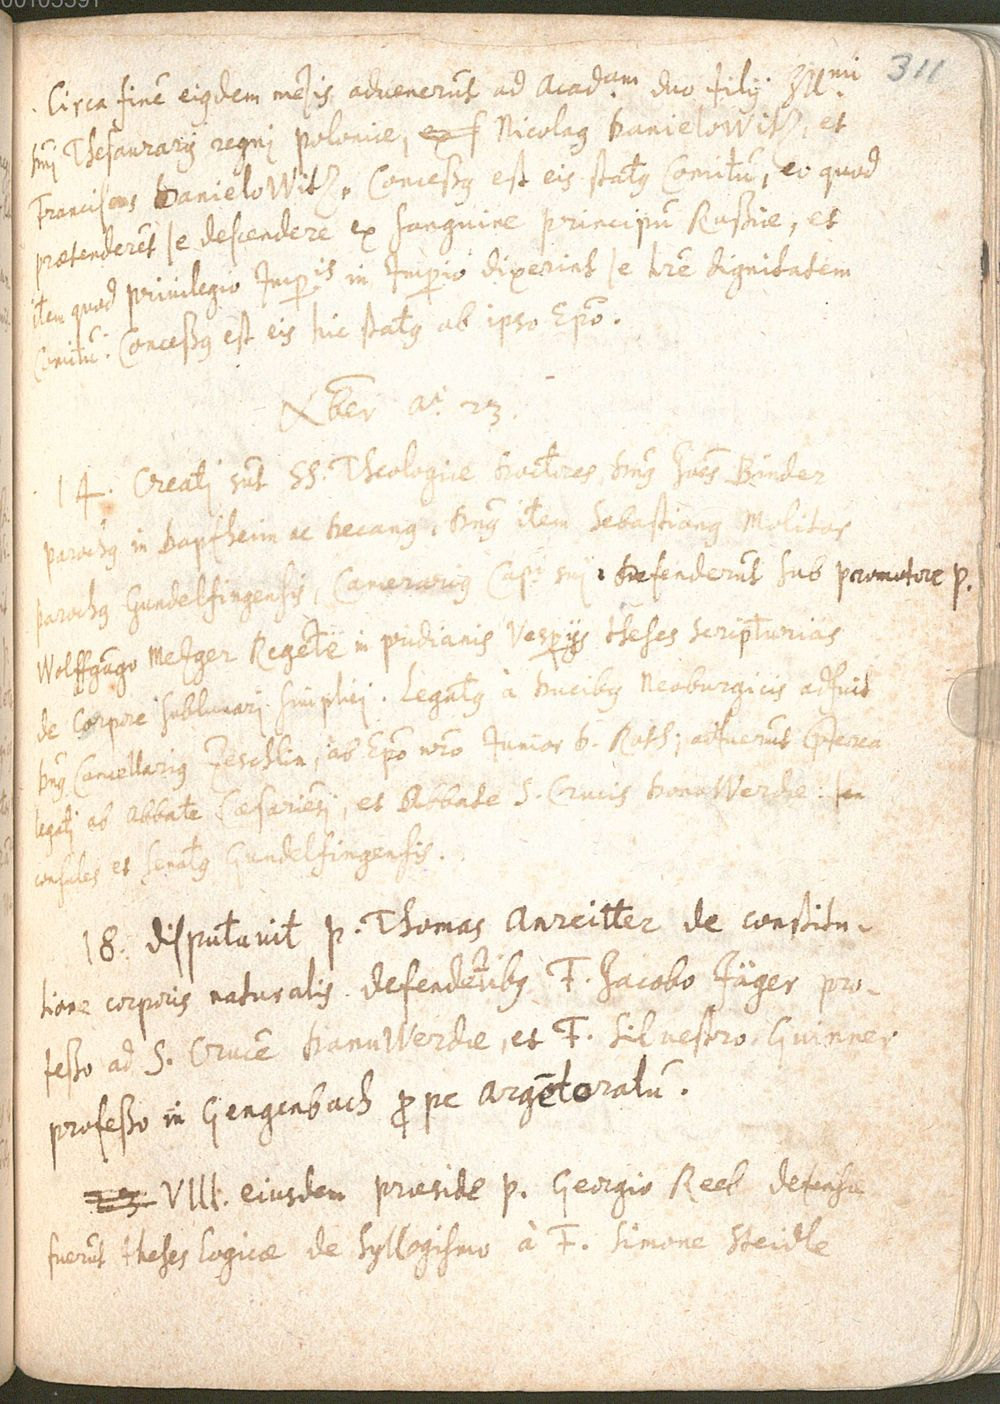 311
Circa finē eiꝯdem mēsis advenerūt ad Acad.am duo filij Ill.mi
Dn̄i Thesaurarij regni poloniæ, Nicolaꝯ DanieloWitz, et
Franciscus DanieloWitz, Concessꝯ est eis statꝯ Comitū, eo quod
prætenderēt se descendere ex sanguine principū Russiæ, et
item quod privilegio Imp.is in Imperio dixerint se hr̄e dignitatem
Comitū. Concessꝯ est eis hic statꝯ ab ipso Ep̄o.
Xber aī 23.
14. Creati sūt SS. Theologiæ Doctores, Dn̄s Joēs Binder
parochꝯ in Dapfheim ac Decanꝯ, Dn̄s item Sebastianꝯ Molitor
parochꝯ Gundelfingensis, Camerariꝯ Capi sui, Defenderūt sub promotore P.
Wolffgāgo Mezger Regēte in pridianis Vesperijs theses scripturias
de Corpore sublunari simplici. Legatꝯ à Ducibꝯ Neoburgicis adfuit
Dn̄s Cancellariꝯ Zeschlin, ab Ep̄o nr̄o Junior D. Roth; adfuerūt præterea
legati ab Abbate Cæsariēsi, et Abbate S. Crucis DonaWerdæ.
consules et senatꝯ Gundelfingensis.
18. disputavit P. Thomas Anreitter de constitu-
tione corporis naturalis. defendētibꝯ F. Jacobo Jäger pro-
fesso ad S. Crucē DanuWerdæ, et F. Silvestro Guinner
professo in Gengenbach prope Argētoratū.
VIII. eiusdem præside P. Georgio Reeb defensæ
fuerūt theses logicæ de Syllogismo à F. Simone Steidle